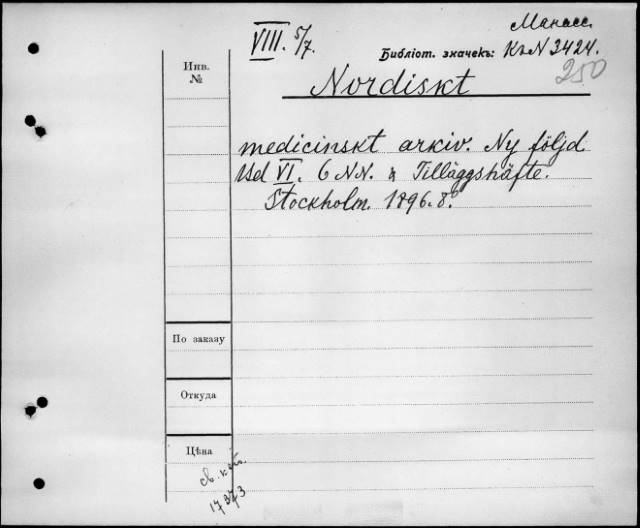 Манасс.
VIII. 5/7.
Библіот. значекъ: КъN 3424.
250
Инв.
№
Nordiskt
medicinskt arkiv. Ny följd
Bd VI. 6 NN. & Tilläggshäfte.
Stockholm. 1896. 8°.
По заказу
Откуда
Цѣна
св. к
17373